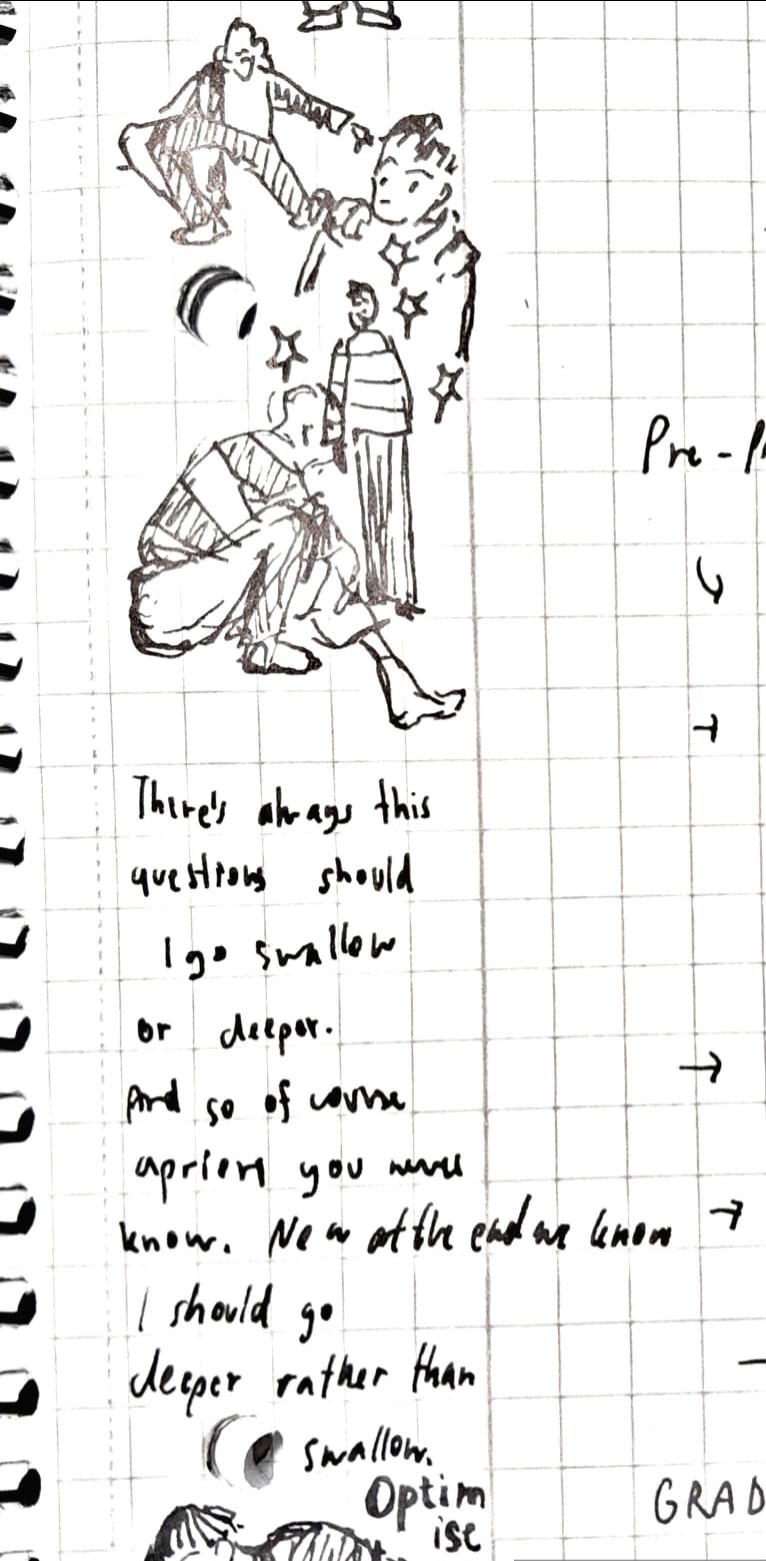 There's always this
questions should
I go swallow
or deeper.
And so of course
apriori you never
know. Now at the end we know
I should go
deeper rather than
swallow.
Optim
ise
Pre-
GRAD